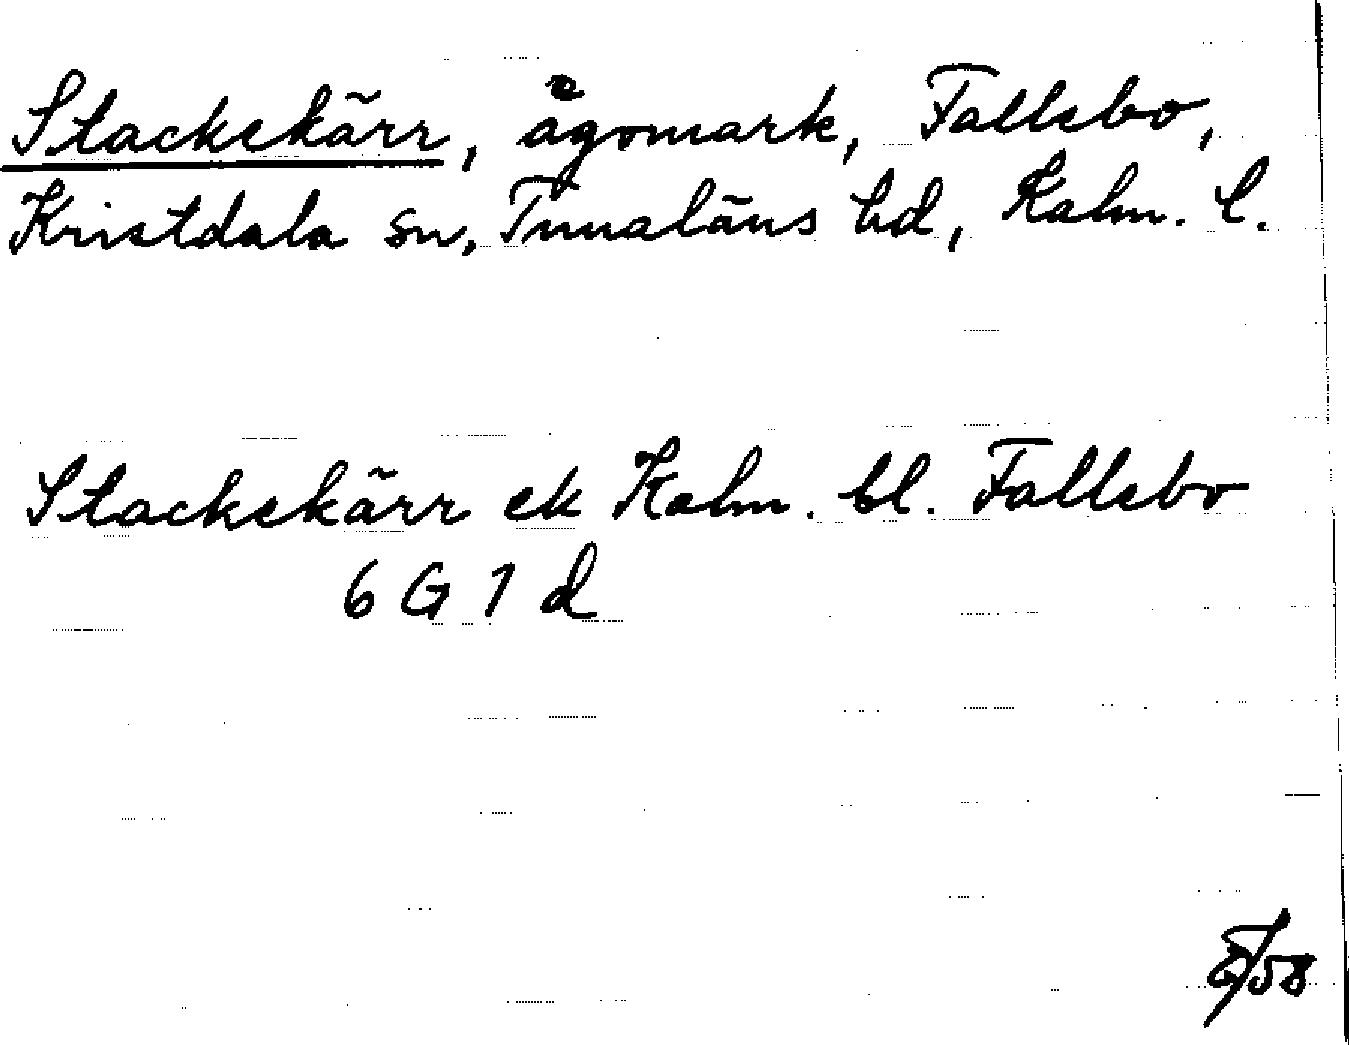 Stackekärr, ägomark, Fallebo,
Kristdala sn, Tunaläns hd, Kalm. l.
Stackekärr ek Kalm. bl. Fallebo
6 G 1 d
/58